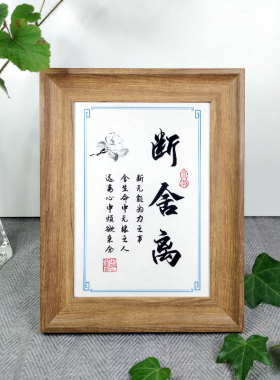 断舍离
断无能为力之事
舍生命中无缘之人
远离心中烦欲杂念